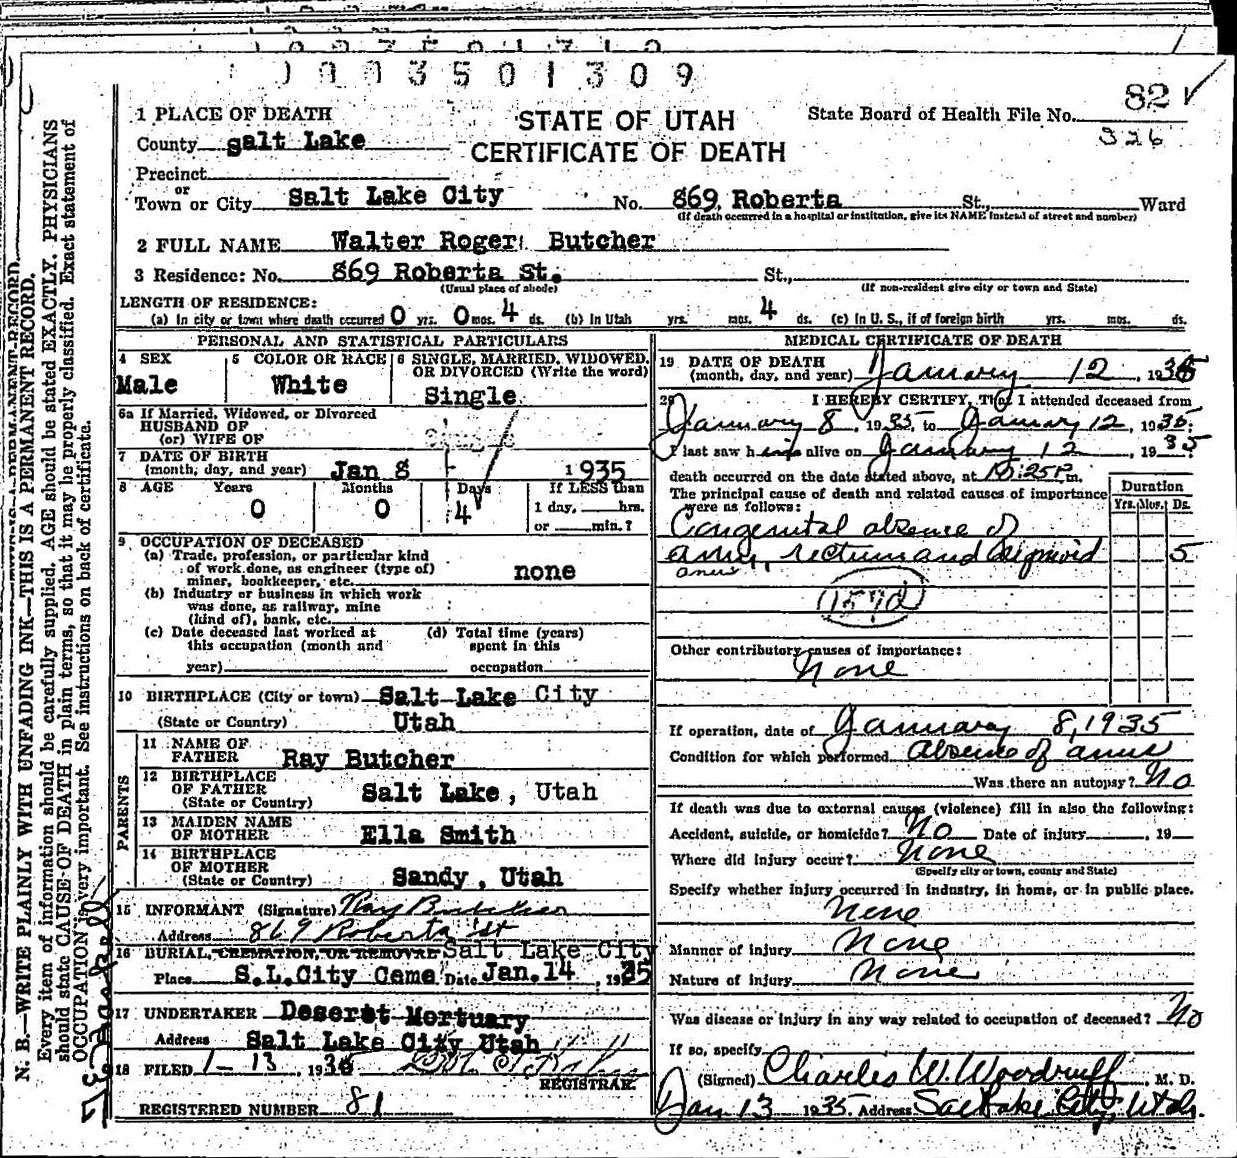 0003501309
82
326
1 PLACE OF DEATH
STATE OF UTAH
State Board of Health File No.
County Salt Lake
CERTIFICATE OF DEATH
Precinct
or
Town or City Salt Lake City No. 869 Roberta St., Ward
(If death occurred in a hospital or institution, give its NAME instead of street and number)
2 FULL NAME Walter Roger Butcher
3 Residence: No. 869 Roberta St. St.,
(Usual place of abode) (If non-resident give city or town and State)
LENGTH OF RESIDENCE:
(a) In city or town where death occurred 0 yrs. 0 mos. 4 ds. (b) In Utah yrs. mos. 4 ds. (c) In U. S., if of foreign birth yrs. mos. ds.
PERSONAL AND STATISTICAL PARTICULARS
4 SEX 5 COLOR OR RACE 6 SINGLE, MARRIED, WIDOWED,
OR DIVORCED (Write the word)
Male White Single
6a If Married, Widowed, or Divorced
HUSBAND OF
(or) WIFE OF
7 DATE OF BIRTH
(month, day, and year) Jan 8 1935
8 AGE Years Months Days If LESS than
0 0 4 1 day, hrs.
or min.?
9 OCCUPATION OF DECEASED
(a) Trade, profession, or particular kind
of work done, as engineer (type of)
miner, bookkeeper, etc. none
(b) Industry or business in which work
was done, as railway, mine
(kind of), bank, etc.
(c) Date deceased last worked at (d) Total time (years)
this occupation (month and spent in this
year) occupation
10 BIRTHPLACE (City or town) Salt Lake City
(State or Country) Utah
PARENTS
11 NAME OF
FATHER Ray Butcher
12 BIRTHPLACE
OF FATHER
(State or Country) Salt Lake, Utah
13 MAIDEN NAME
OF MOTHER Ella Smith
14 BIRTHPLACE
OF MOTHER
(State or Country) Sandy, Utah
15 INFORMANT (Signature) Ray Butcher
Address 869 Roberta St
16 BURIAL, CREMATION, OR REMOVAL Salt Lake City
Place S.L.City Ceme Date Jan. 14, 1935
17 UNDERTAKER Deseret Mortuary
Address Salt Lake City Utah
18 FILED 1-13, 1935
REGISTRAR
REGISTERED NUMBER 81
MEDICAL CERTIFICATE OF DEATH
19 DATE OF DEATH
(month, day, and year) January 12, 1935
20 I HEREBY CERTIFY, That I attended deceased from
January 8, 1935, to January 12, 1935;
I last saw him alive on January 12, 1935
death occurred on the date stated above, at 10:25 P. m.
The principal cause of death and related causes of importance
were as follows:
Duration
Yrs. Mos. Ds.
Congenital absence of
anus, rectum and sigmoid 5
anus
157d
Other contributory causes of importance:
None
If operation, date of January 8, 1935
Condition for which performed Absence of anus
Was there an autopsy? No
If death was due to external causes (violence) fill in also the following:
Accident, suicide, or homicide? No Date of injury , 19
Where did injury occur? None
(Specify city or town, county and State)
Specify whether injury occurred in industry, in home, or in public place.
None
Manner of injury None
Nature of injury None
Was disease or injury in any way related to occupation of deceased? No
If so, specify
(Signed) Charles W. Woodruff, M. D.
Jan 13 1935. Address Salt Lake City, Utah.
N. B.—WRITE PLAINLY WITH UNFADING INK—THIS IS A PERMANENT RECORD.
Every item of information should be carefully supplied. AGE should be stated EXACTLY. PHYSICIANS
should state CAUSE OF DEATH in plain terms, so that it may be properly classified. Exact statement of
OCCUPATION is very important. See instructions on back of certificate.